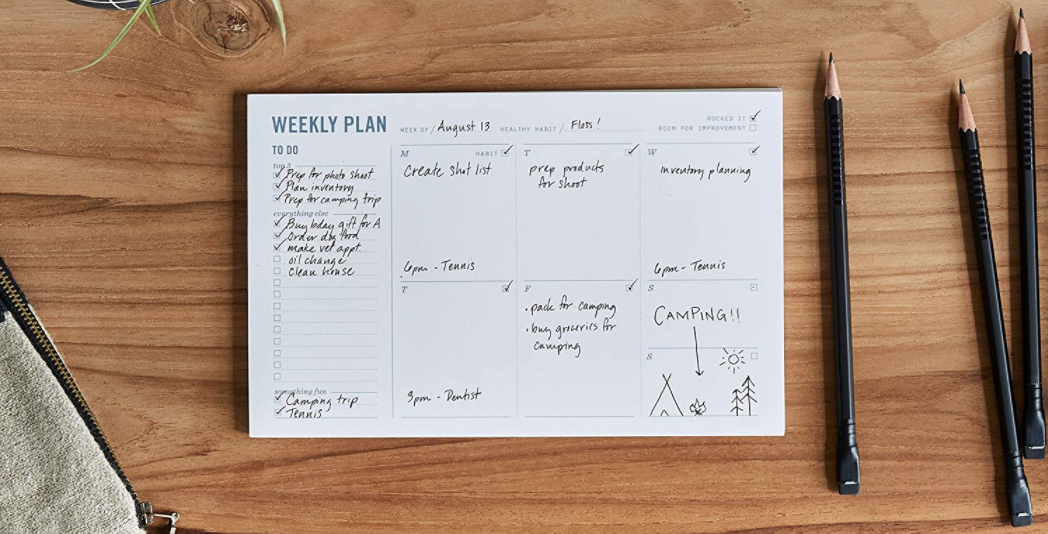 WEEKLY PLAN
WEEK OF / August 13 HEALTHY HABIT / Floss!
ROCKED IT
ROOM FOR IMPROVEMENT
TO DO
top 3
Prep for photo shoot
Plan inventory
Prep for camping trip
everything else
Buy bday gift for A
Order dog food
make vet appt.
oil change
clean house
something fun
Camping trip
Tennis
M HABIT
Create shot list
6pm - Tennis
T
prep products
for shoot
W
inventory planning
6pm - Tennis
T
3pm - Dentist
F
• pack for camping
• buy groceries for
camping
S
CAMPING!!
S